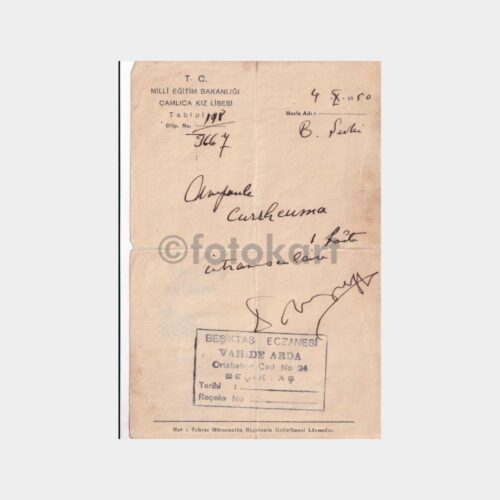 T. C.
MİLLİ EĞİTİM BAKANLIĞI
ÇAMLICA KIZ LİSESİ
Tabipl
Dilp. No. 198
3667
4 X 1950
Hasta Adı:
B.
Ampoule
Curthcuma
1 boîte
intramusculaire
©fotokart
BEŞİKTAŞ ECZANESİ
VAHİDE ARDA
Ortabahçe Cad No 24
BEŞİKTAŞ
Tarihi :
Reçete No
Not : Tekrar Müracaatta Reçetenin Getirilmesi Lâzımdır.